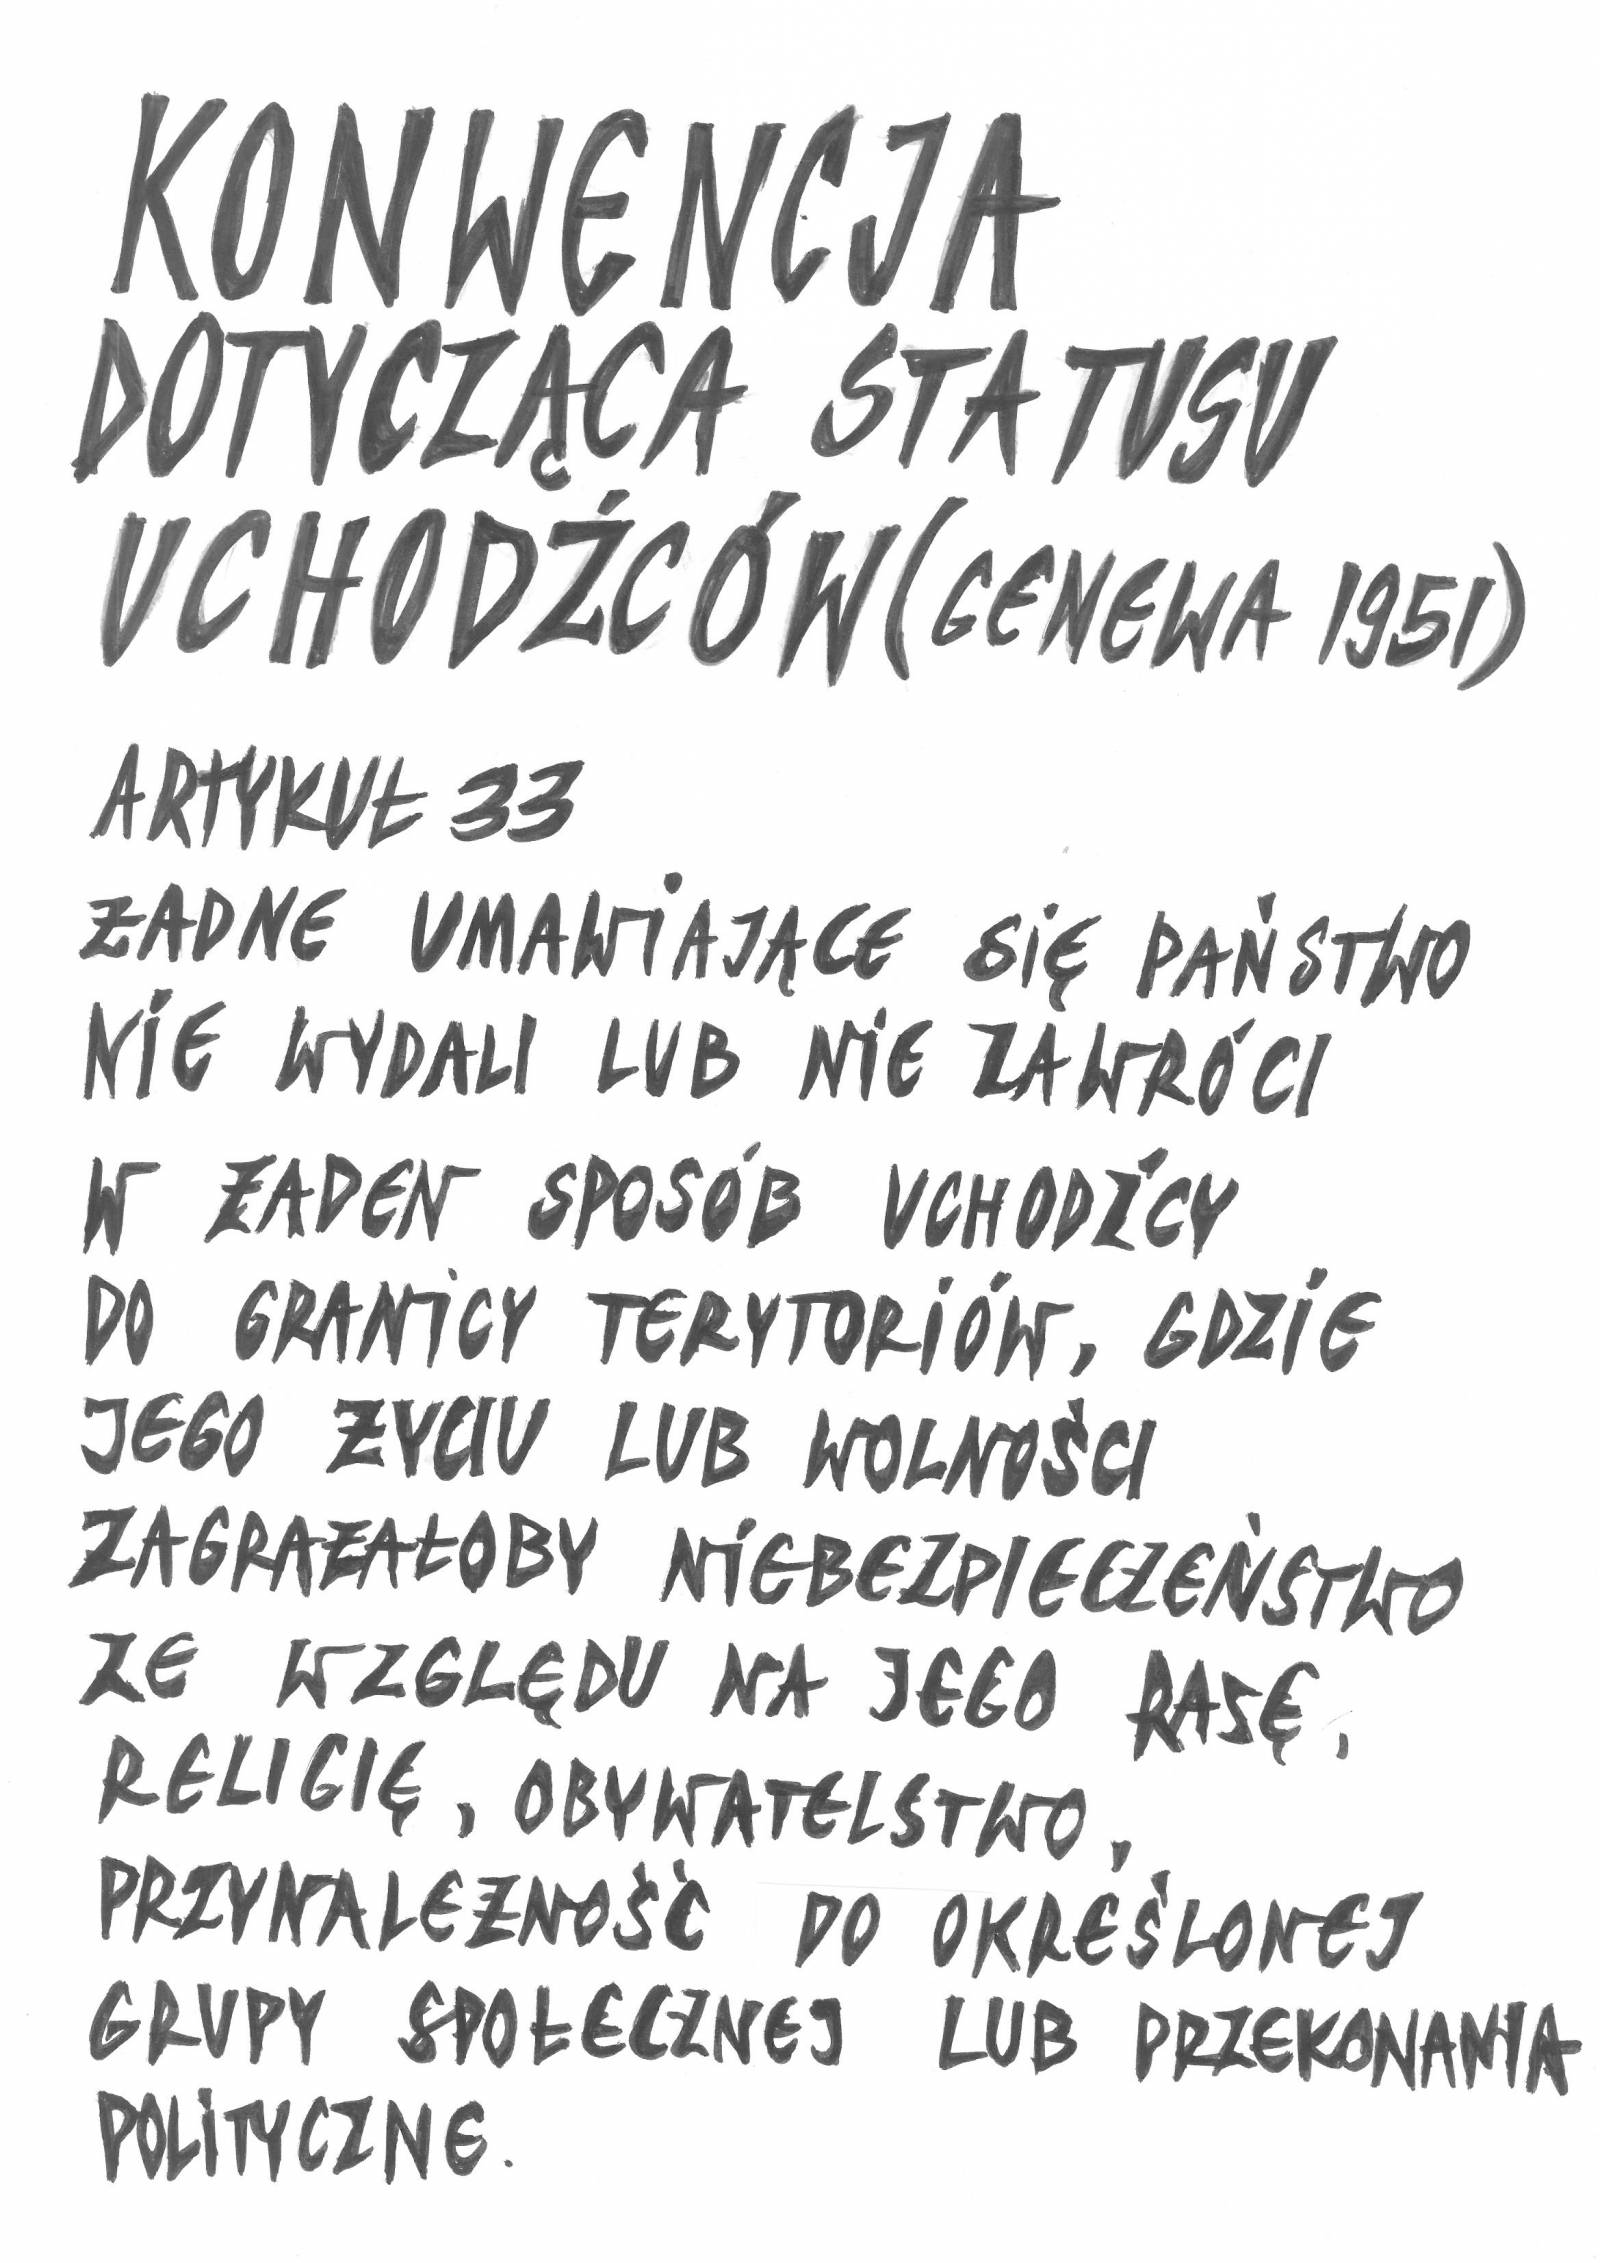 KONWENCJA
DOTYCZĄCA STATUSU
UCHODŹCÓW (GENEWA 1951)
ARTYKUŁ 33
ŻADNE UMAWIAJĄCE SIĘ PAŃSTWO
NIE WYDALI LUB NIE ZAWRÓCI
W ŻADEN SPOSÓB UCHODŹCY
DO GRANICY TERYTORIÓW, GDZIE
JEGO ŻYCIU LUB WOLNOŚCI
ZAGRAŻAŁOBY NIEBEZPIECZEŃSTWO
ZE WZGLĘDU NA JEGO RASĘ,
RELIGIĘ, OBYWATELSTWO,
PRZYNALEŻNOŚĆ DO OKREŚLONEJ
GRUPY SPOŁECZNEJ LUB PRZEKONANIA
POLITYCZNE.